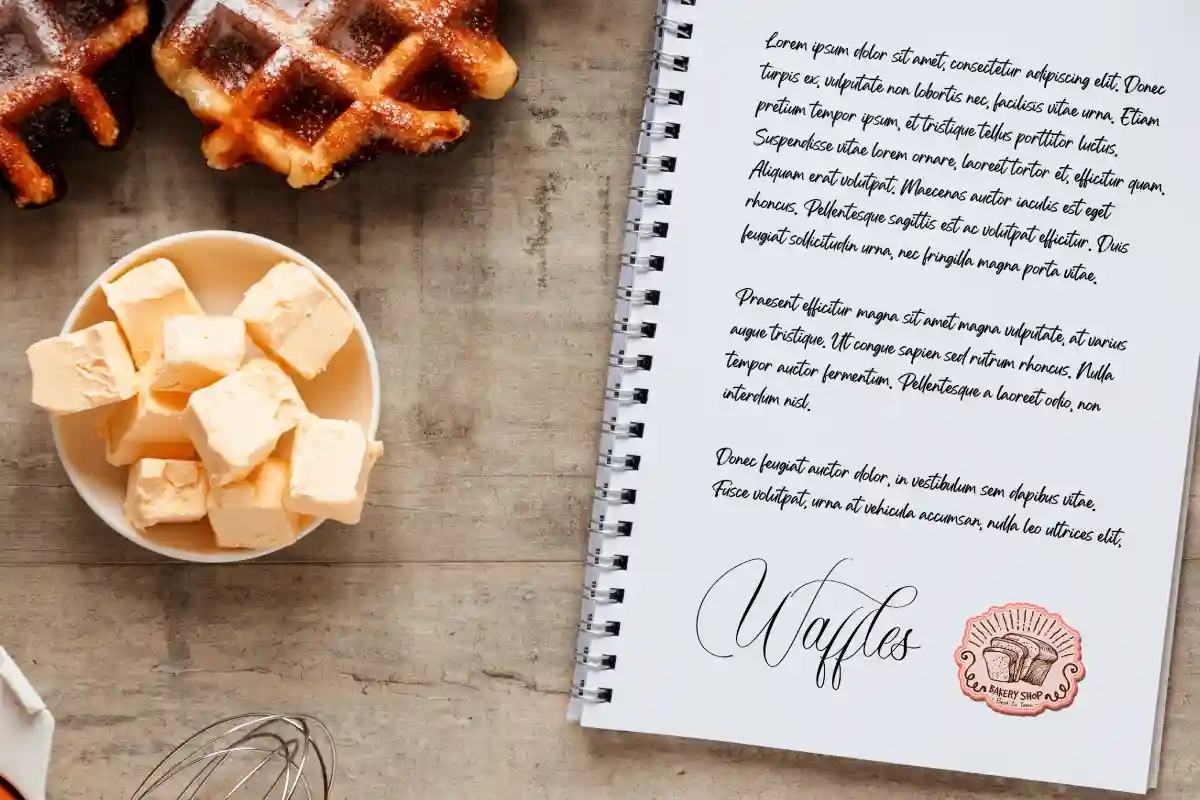 Lorem ipsum dolor sit amet, consectetur adipiscing elit. Donec
turpis ex, vulputate non lobortis nec, facilisis vitae urna. Etiam
pretium tempor ipsum, et tristique tellus porttitor luctus.
Suspendisse vitae lorem ornare, laoreet tortor et, efficitur quam.
Aliquam erat volutpat. Maecenas auctor iaculis est eget
rhoncus. Pellentesque sagittis est ac volutpat efficitur. Duis
feugiat sollicitudin urna, nec fringilla magna porta vitae.
Praesent efficitur magna sit amet magna vulputate, at varius
augue tristique. Ut congue sapien sed rutrum rhoncus. Nulla
tempor auctor fermentum. Pellentesque a laoreet odio, non
interdum nisl.
Donec feugiat auctor dolor, in vestibulum sem dapibus vitae.
Fusce volutpat, urna at vehicula accumsan, nulla leo ultrices elit,
Waffles
BAKERY SHOP
Best In Town